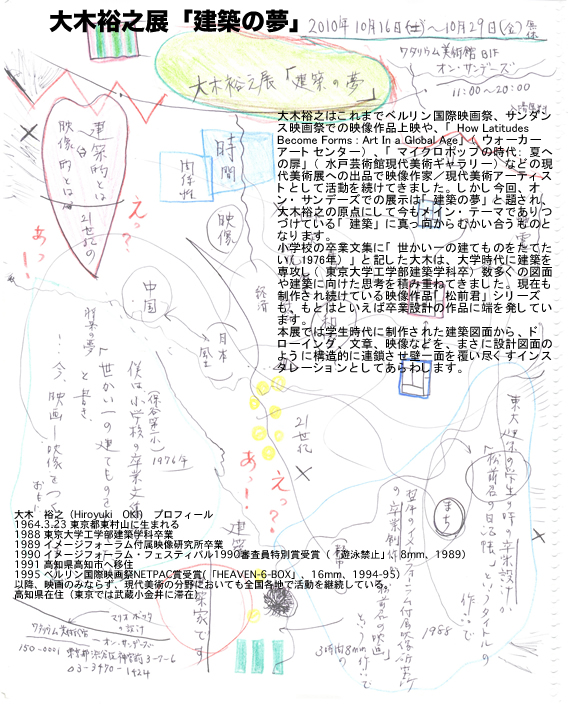 大木裕之展「建築の夢」
2010年10月16日(土)〜10月29日(金)
ワタリウム美術館B1F
オン・サンデーズ
11:00〜20:00
大木裕之展「建築の夢」
大木裕之はこれまでベルリン国際映画祭、サンダン
ス映画祭での映像作品上映や、「How Latitudes
Become Forms : Art In a Global Age」(ウォーカー
アートセンター)、「マイクロポップの時代:夏へ
の扉」(水戸芸術館現代美術ギャラリー)などの現
代美術展への出品で映像作家/現代美術アーティス
トとして活動を続けてきました。しかし今回、オ
ン・サンデーズでの展示は「建築の夢」と題され、
大木裕之の原点にして今もメイン・テーマでありつ
づけている「建築」に真っ向からむかい合うものと
なります。
小学校の卒業文集に「世かい一の建てものをたてた
い(1976年)」と記した大木は、大学時代に建築を
専攻し(東京大学工学部建築学科卒)数多くの図面
や建築に向けた思考を積み重ねてきました。現在も
制作され続けている映像作品「松前君」シリーズ
も、もとはといえば卒業設計の作品に端を発してい
ます。
本展では学生時代に制作された建築図面から、ド
ローイング、文章、映像などを、まさに設計図面の
ように構造的に連鎖させ壁一面を覆い尽くすインス
タレーションとしてあらわします。
建築的とは
映像的とは
21世紀の
えっ?
あっ!
時間
肉体性
映像
中国
日本
経済
風土
21世紀
えっ?
あっ!
僕は小学校の卒業文集
(保谷第一小)
1976年
「世かい一の建てものを
と書き、
今、映画ー映像をつ
東大建築の学生の時の卒業設計が
「松前君の日記帳」というタイトルの
まち
作品で
1988
フォーラム付属映像研究所
の卒業制作
という作品で
3時間の8mm
大木 裕之(Hiroyuki OKI) プロフィール
1964.3.23 東京都東村山に生まれる
1988 東京大学工学部建築学科卒業
1989 イメージフォーラム付属映像研究所卒業
1990 イメージフォーラム・フェスティバル1990審査員特別賞受賞(「遊泳禁止」、8mm、1989)
1991 高知県高知市へ移住
1995 ベルリン国際映画祭NETPAC賞受賞(「HEAVEN-6-BOX」、16mm、1994-95)
以降、映画のみならず、現代美術の分野においても全国各地で活動を継続している。
高知県在住(東京では武蔵小金井に滞在)
家です
マリオ ボッタ
の設計
ワタリウム美術館
オン・サンデーズ
150-0001 東京都渋谷区神宮前3-7-6
03-3470-1424